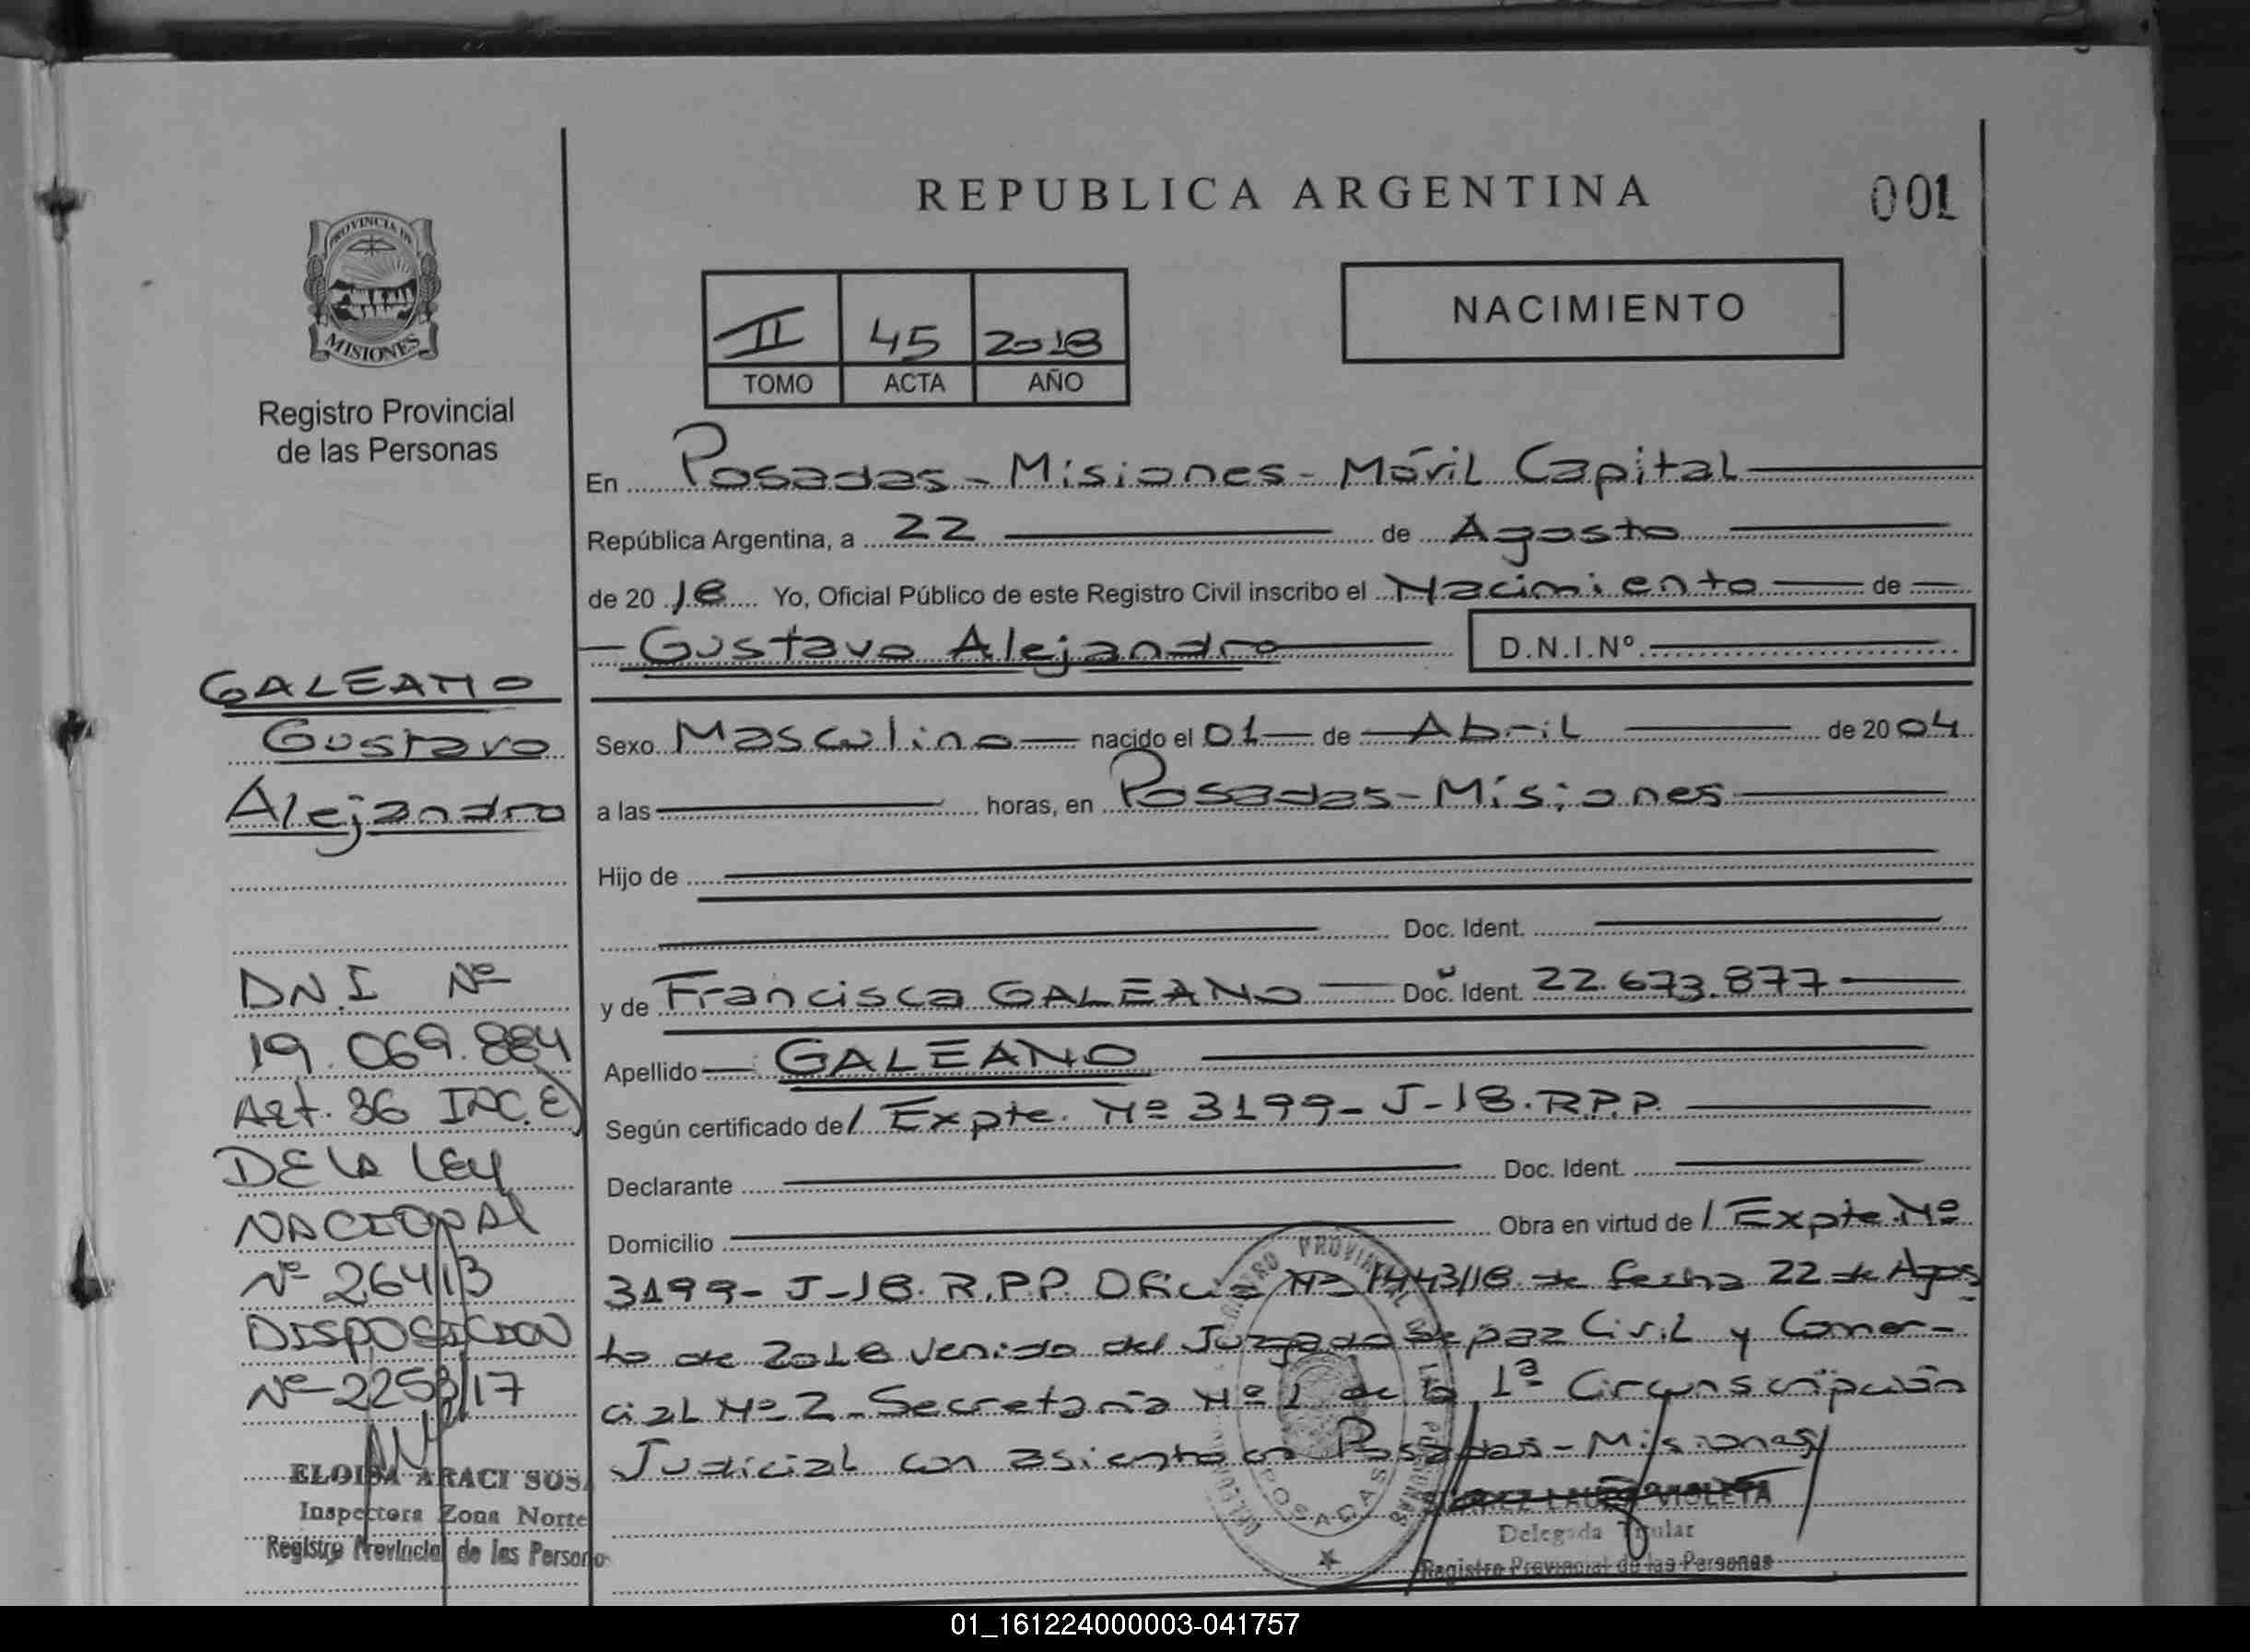 REPUBLICA ARGENTINA
001
PROVINCIA DE
MISIONES
Registro Provincial
de las Personas
II 45 2018
TOMO ACTA AÑO
NACIMIENTO
En Posadas - Misiones - Móvil Capital
República Argentina, a 22 de Agosto
de 20 18 Yo, Oficial Público de este Registro Civil inscribo el Nacimiento de
Gustavo Alejandro D.N.I.Nº
GALEANO
Gustavo
Alejandro
Sexo Masculino nacido el 01 de Abril de 20 04
a las horas, en Posadas - Misiones
Hijo de
Doc. Ident.
y de Francisca GALEANO Doc. Ident. 22.673.877
Apellido GALEANO
Según certificado de / Expte. Nº 3199 - J - 18. R.P.P.
Declarante Doc. Ident.
Domicilio Obra en virtud de / Expte Nº
3199 - J - 18. R.P.P. Oficio Nº 1443/18 de fecha 22 de Agos
to de 2018 venido del Juzgado de paz Civil y Comer-
cial Nº 2 - Secretaría Nº 1 de la 1ª Circunscripción
Judicial con asiento en Posadas - Misiones
DN.I Nº
19.069.884
Art. 36 INC.E)
DE LA LEY
NACIONAL
Nº 26413
DISPOSICION
Nº 2258/17
ELOISA ARACI SOS
Inspectora Zona Norte
Registro Provincial de las Persona
POSADAS
VIOLETA
Delegada Titular
Registro Provincial de las Personas
01_161224000003-041757